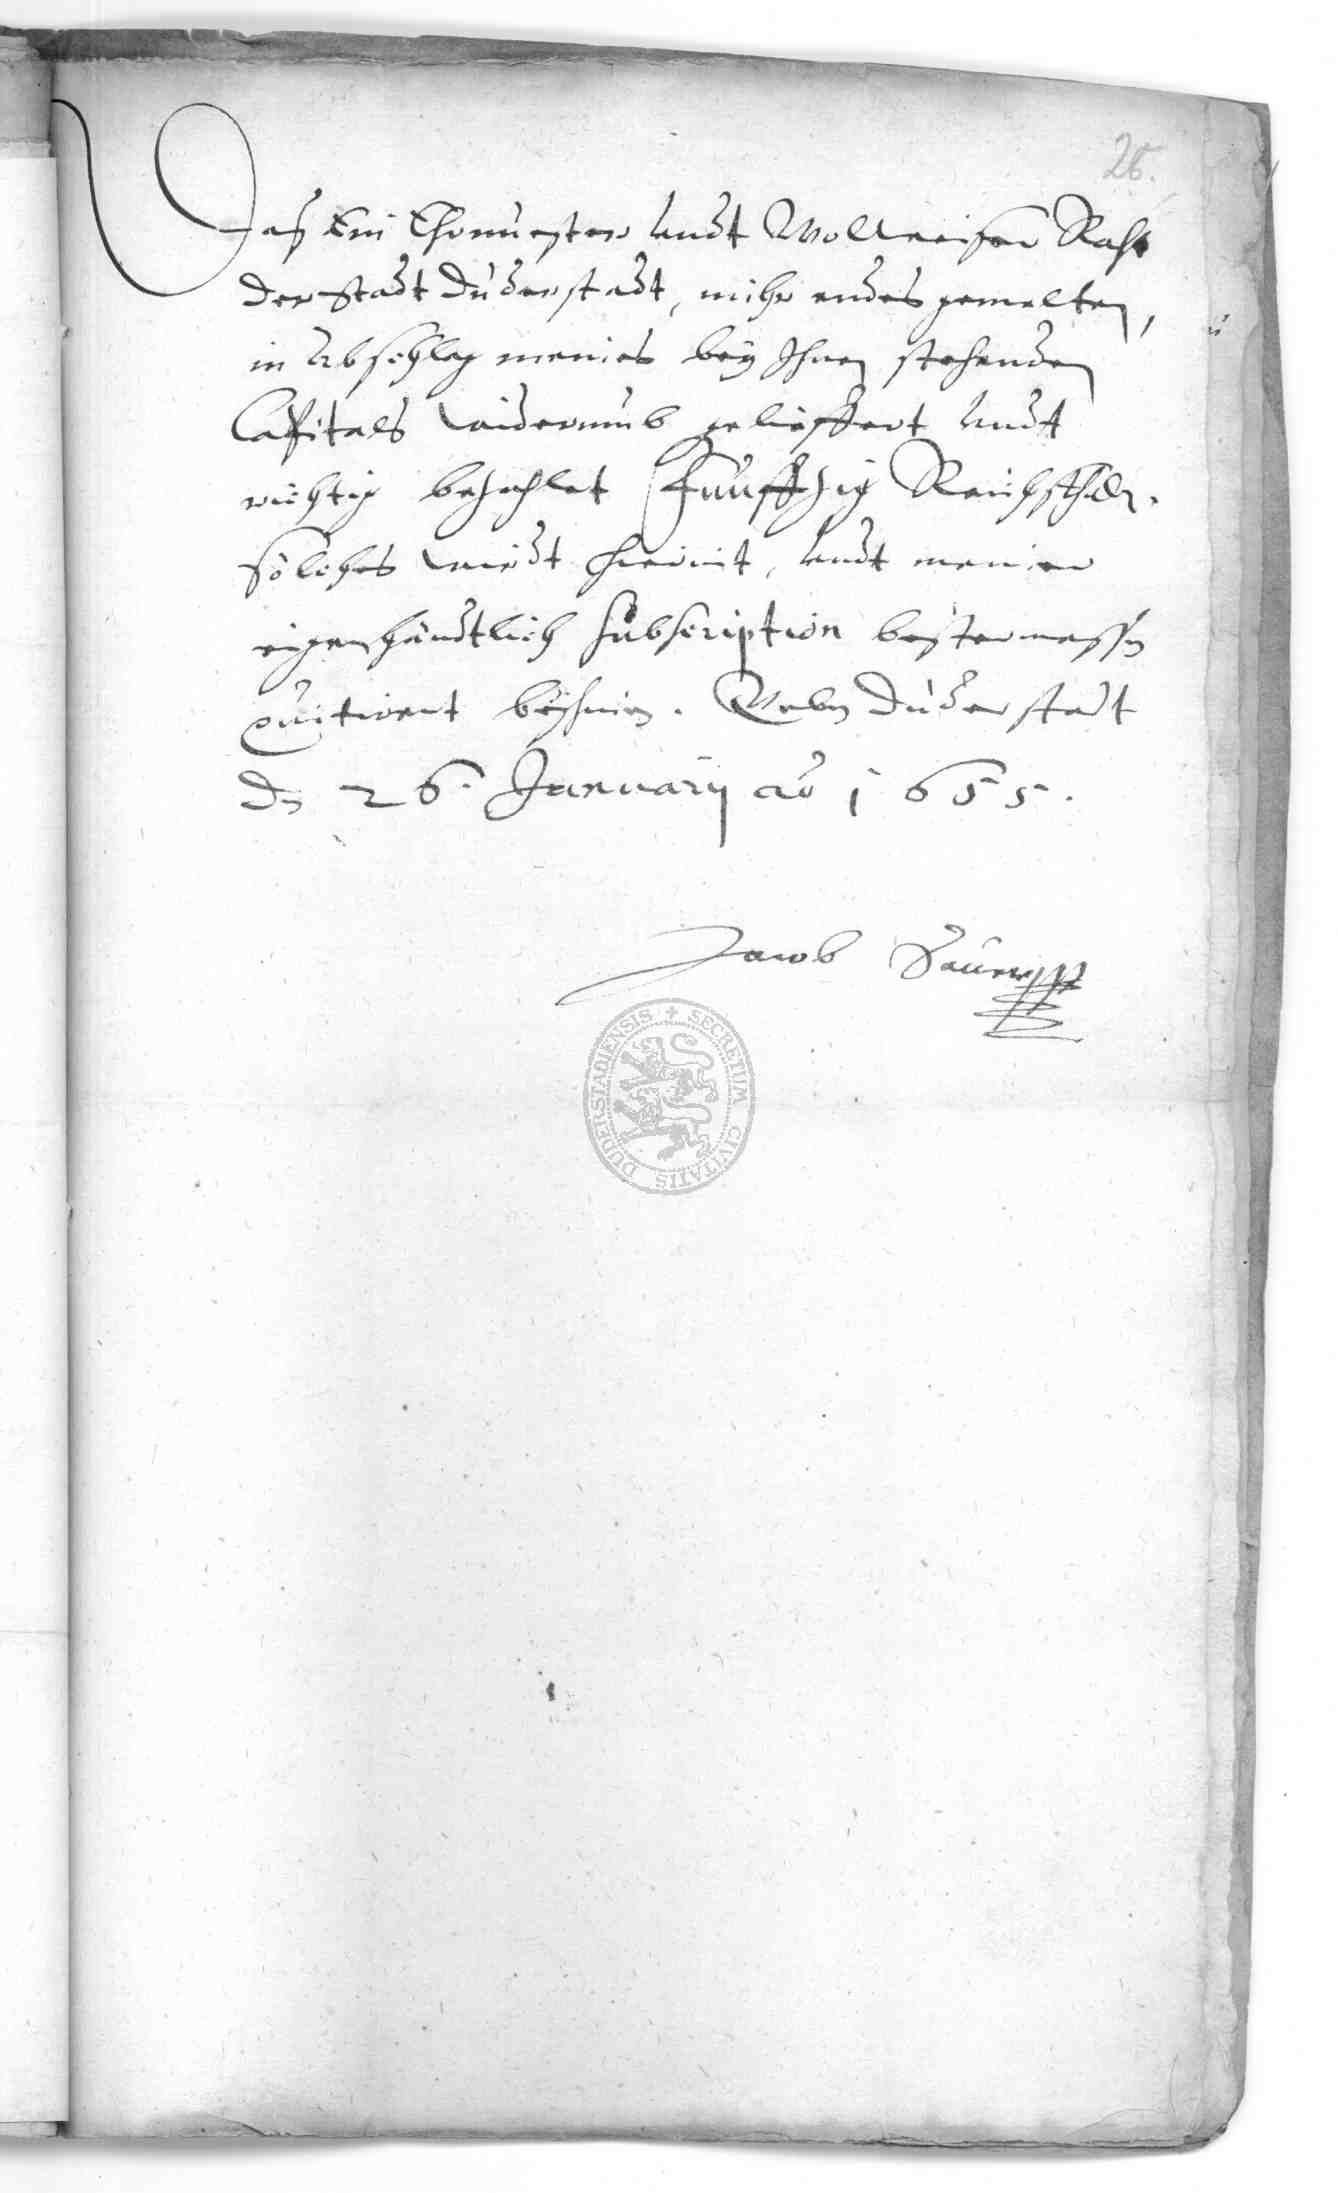 26.
Daß Ein Ehrnuester undt Wollweiser Raht
der Stadt Duderstadt, mihr endes gemelten,
in Abschlag meines bey Ihnen stehenden
Capitals widerumb gelieffert undt
richtig bezahlet Funffzig Reichsthlr.
solches wirdt hiermit, undt meiner
eigenhändtlich subscription bestermassen
quitirent beschienen. Geben Duderstadt
den 26. Januarij ao 1655.
Jacob
SECRETUM CIVITATIS DUDERSTADIENSIS